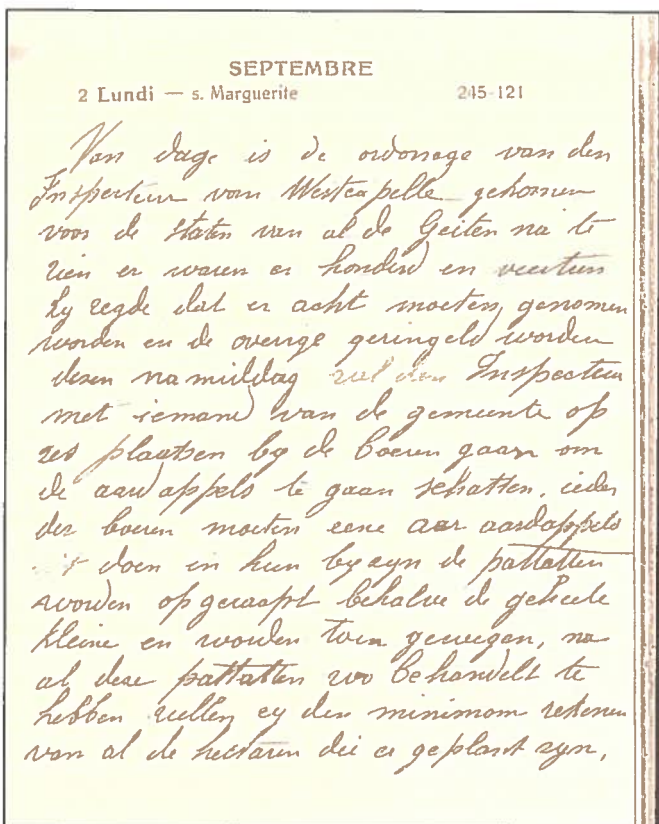 SEPTEMBRE
2 Lundi — s. Marguerite 245-121
Van dage is de ordonnage van den
Inspecteur van Westcapelle gekomen
voor de staten van al de Geiten na te
zien er waren er honderd en veertien
zy zegde dat er acht moeten genomen
worden en de overige geringeld worden
dezen namiddag zal den Inspecteur
met iemand van de gemeente op
zes plaatsen by de boeren gaan om
de aardappels te gaan schatten, ieder
der boeren moeten eene aar aardappels
uit doen in hun byzyn de pattatten
worden opgeraapt behalve de geheele
kleine en worden toen gewegen, na
al deze pattatten zoo behandelt te
hebben zullen zy den minimom rekenen
van al de hectaren die er geplant zyn,